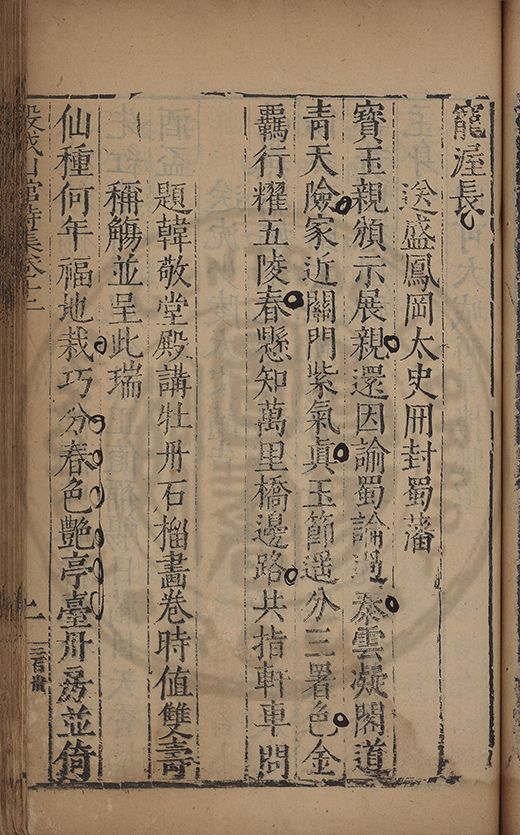 寵渥長
送盛鳳岡太史冊封蜀藩
寶玉親頒示展親還因諭蜀論過秦雲凝閣道
青天險家近關門紫氣眞玉節遥分三署色金
羈行耀五陵春懸知萬里橋邊路共指軒車問
題韓敬堂殿講牡丹石榴畫卷時值雙壽
稱觴並呈此瑞
仙種何年福地栽巧分春色艷亭臺丹房並倚
穀城山館詩集卷十二